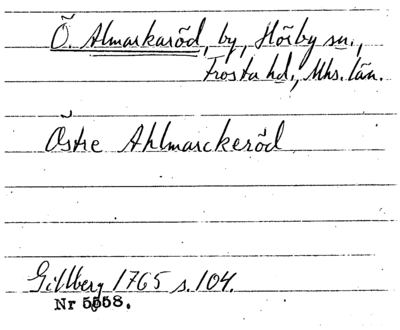 Ö. Almarkaröd, by, Hörby sn.,
Frosta hd., Mhs. län.
Östre Ahlmarckeröd
Gillberg 1765 s. 104.
Nr 5558.